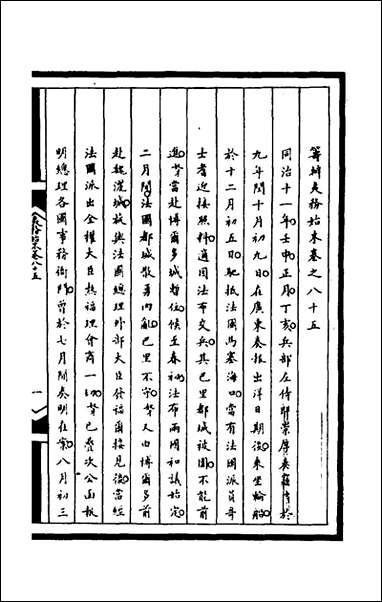 籌辦夷務始末卷之八十五
同治十一年壬申正月丁亥兵部左侍郎崇厚奏竊李於
九年閏十月初九日在廣東奏報出洋日期後乘坐輪船
於十二月初五日馳抵法國馬塞海口當有法國派員哥
士耆迎接照料適因法布交兵其巴里都城被圍不能前
進李當赴博爾多城暫住候至春初法布兩國和議始定
二月間法國都城散勇內亂巴里不守李又由博爾多前
赴魏灑城投與法國總理外部大臣發福爾接見後當經
法國派出全權大臣熱福理會商一切李已疊次公函報
明總理各國事務衙門曾於七月間奏明在案八月初三
八十五
一